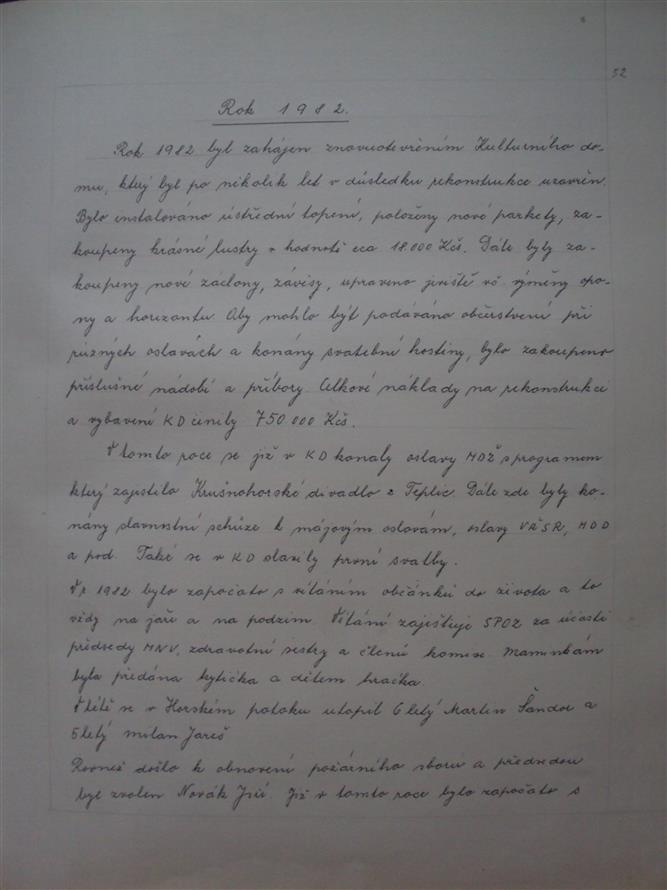 52
Rok 1982.
Rok 1982 byl zahájen znovuotevřením Kulturního do-
mu, který byl po několik let v důsledku rekonstrukce uzavřen.
Bylo instalováno ústřední topení, položeny nové parkety, za-
koupeny krásné lustry v hodnotě cca 18.000 Kčs. Dále byly za-
koupeny nové záclony, závěsy, upraveno jeviště vč. výměny opo-
ny a horizontu. Aby mohlo být podáváno občerstvení při
různých oslavách a konány svatební hostiny, bylo zakoupeno
příslušné nádobí a příbory. Celkové náklady na rekonstrukci
a vybavení KD činily 750.000 Kčs.
V tomto roce se již v KD konaly oslavy MDŽ s programem
který zajistilo Krušnohorské divadlo z Teplic. Dále zde byly ko-
nány slavnostní schůze k májovým oslavám, oslavy VŘSR, MDD
a pod. Také se v KD slavily první svatby.
V r. 1982 bylo započato s vítáním občánků do života a to
vždy na jaře a na podzim. Vítání zajišťuje SPOZ za účasti
předsedy MNV, zdravotní sestry a členů komise. Maminkám
byla předána kytička a dětem hračka.
V létě se v Horském potoku utopil 6 letý Martin Šandor a
5 letý Milan Jareš
Rovněž došlo k obnovení požárního sboru a předsedou
byl zvolen Novák Jiří. Již v tomto roce bylo započato s